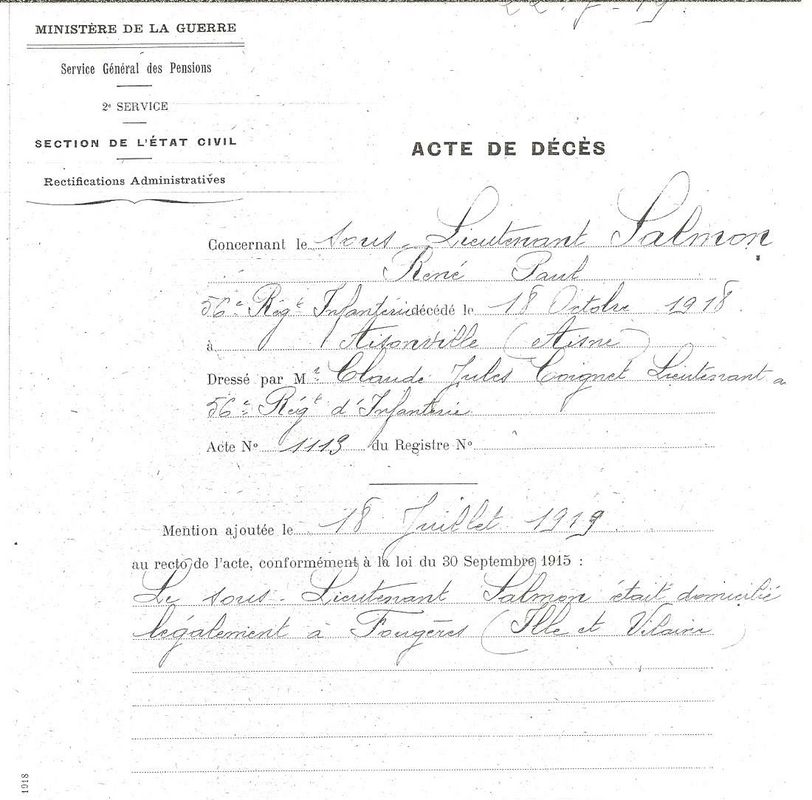 22.7-19.
MINISTÈRE DE LA GUERRE
Service Général des Pensions
2e SERVICE
SECTION DE L'ÉTAT CIVIL
Rectifications Administratives
ACTE DE DÉCÈS
Concernant le sous-Lieutenant Salmon
René Paul
56e Régt Infanterie décédé le 18 Octobre 1918
à Aisonville (Aisne)
Dressé par Mr Claude Jules Coignet Lieutenant a
56e Régt d'Infanterie
Acte No 1113 du Registre No
Mention ajoutée le 18 Juillet 1919
au recto de l'acte, conformément à la loi du 30 Septembre 1915 :
Le sous-Lieutenant Salmon était domicilié
légalement à Fougères (Ille et Vilaine)
1918